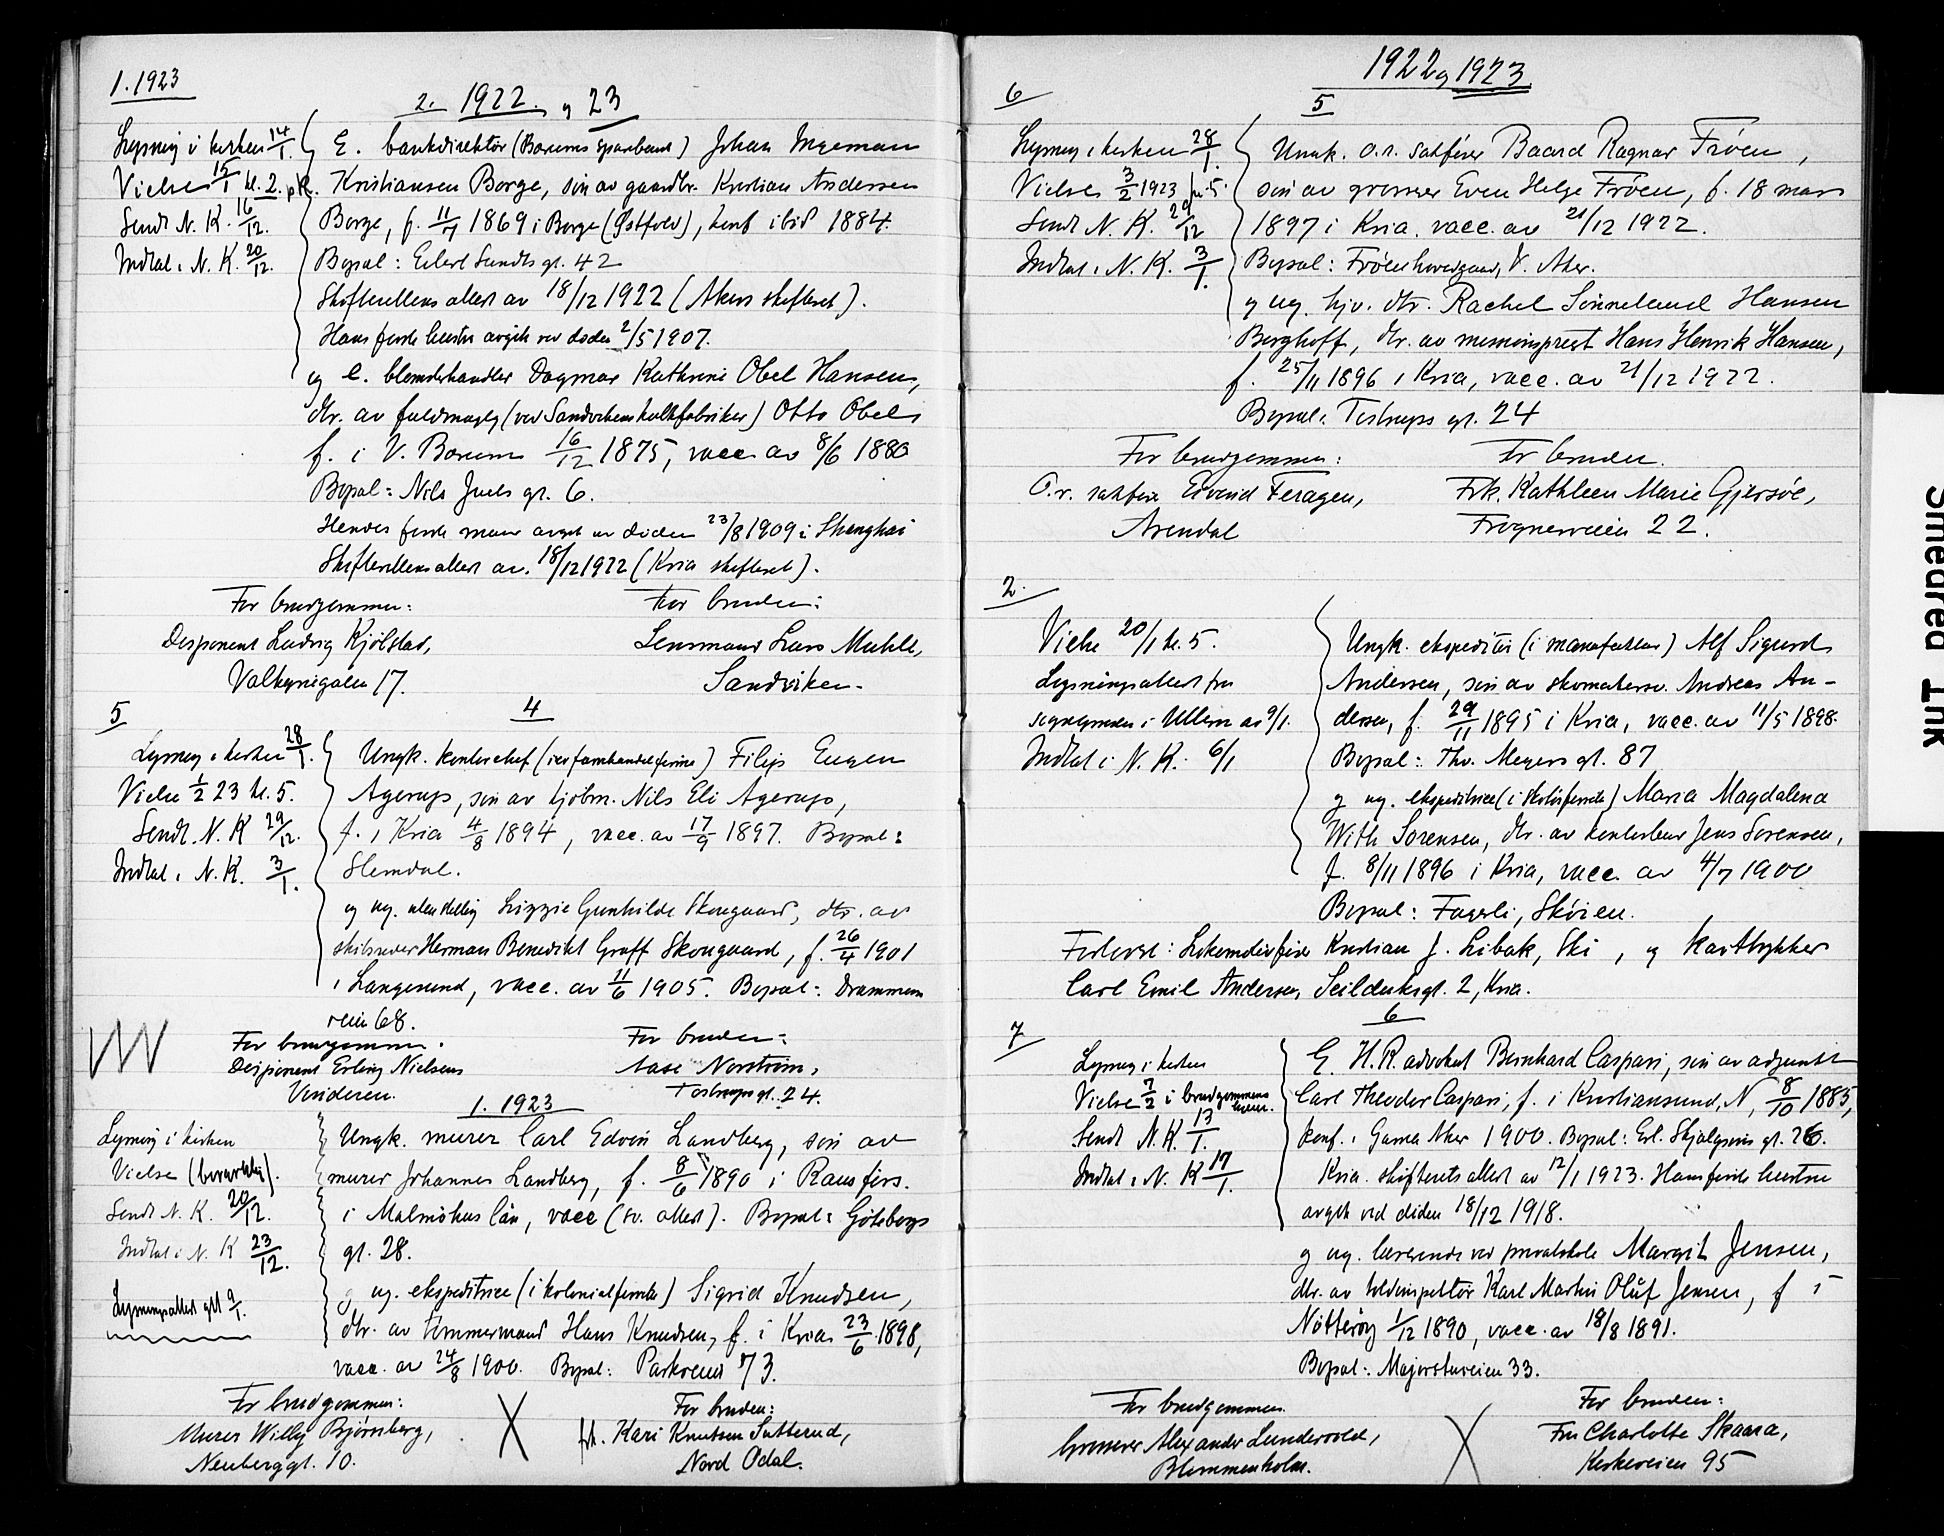 1. 1923
2. 1922. og 23
Lysning i kirken 14/1.
Vielse 15/1 kl. 2. pk.
Sendt N. K. 16/12.
Indtat i N. K. 20/12.
E. bankdirektør (Bærums sparebank) Johan Ingeman
Kristiansen Borge, søn av gaardbr. Kristian Andersen
Borge, f. 11/7 1869 i Borge (Østfold), konf ibid 1884.
Bopæl: Eilert Sundts gt. 42
Skifterettens attest av 18/12 1922 (Akers skifteret).
Hans første hustru avgik ved døden 2/5 1907.
og e. blomsterhandler Dagmar Kathrine Obel Hansen,
dtr. av fuldmægtig (ved Sandvikens kalkfabriker) Otto Obel,
f. i V. Bærum 16/12 1875, vacc. av 8/6 1880
Bopæl: Nils Juels gt. 6.
Hendes første mann avgik ved døden 23/8 1909 i Shanghai
Skifterettens attest av. 18/12 1922 (Kria skifteret).
For brudgommen: For bruden:
Disponent Ludvig Kjölstad, Lensmand Lars Muhle,
Valkyriegaten 17. Sandviken.
5 4
Lysning i kirken 28/1.
Vielse 1/2 23 kl. 5.
Sendt N. K 29/12.
Indtat i N. K. 3/1.
Ungk. kontorchef Filip Eugen
Agerup, søn av kjøbm. Nils Eli Agerup,
f. i Kria 4/8 1894, vacc. av 17/9 1897. Bopæl:
Slemdal.
og ug. uten stilling Lizzie Gunhilde Skougaard, dtr. av
skibsreder Herman Benedikt Graff Skougaard, f. 26/4 1901
i Langesund, vacc. av 11/6 1905. Bopæl: Drammens
veien 68.
For brudgommen. For bruden:
Disponent Erling Nielsen Aase Norström,
Vinderen. Tostrupsgt. 24.
1. 1923
Lysning i kirken
Vielse (borgerlig).
Sendt N. K. 20/12.
Indtat i N. K 23/12.
Lysningsattest git 9/1.
Ungk. murer Carl Edvin Landberg, søn av
murer Johannes Landberg, f. 8/6 1890 i Rausförs.
i Malmöhus län, vacc (sv. attest). Bopæl: Göteborg
gt. 28.
og ug. ekspeditrice (i kolonialforretn.) Sigrid Knudsen,
dtr. av tømmermand Hans Knudsen, f. i Kria 23/6 1898,
vacc. av 24/8 1900. Bopæl: Parkveien 73.
For brudgommen: For bruden:
Murer Willy Bjørnberg, frk. Kari Knutsen Sætterud,
Neuberggt. 10. Nord Odal.
1922 og 1923
6 5
Lysning i kirken 28/1.
Vielse 3/2 1923 kl. 5.
Sendt N. K. 29/12
Indtat i N. K. 3/1.
Ungk. o.r. sakfører Baard Ragnar Frøen,
søn av grosserer Even Helge Frøen, f. 18 mars
1897 i Kria. vacc. av 21/12 1922.
Bopæl: Frøen hovedgaard, V. Aker.
og ug. hjv. dtr. Rachel Sönneland Hansen
Berghoff, dtr. av missionsprest Hans Henrik Hansen,
f. 25/11 1896 i Kria, vacc. av 21/12 1922.
Bopæl: Tostrups gt. 24
For brudgommen: For bruden.
O.r. sakfører Eivind Feragen, Frk. Kathleen Marie Gjersøe,
Arendal Frognerveien 22.
2.
Vielse 20/1 kl. 5.
Lysningsattest fra
sognepresten i Ullern av 9/1.
Indtat i N. K. 6/1
Ungk. ekspeditør (i manufaktur) Alf Sigurd
Andersen, søn av skomakersv. Andreas An-
dersen, f. 29/11 1895 i Kria, vacc. av 11/5 1898.
Bopæl: Thv. Meyers gt. 87
og ug. ekspeditrice Maria Magdalena
With Sorensen, dtr. av kontorbud Jens Sorensen,
f. 8/11 1896 i Kria, vacc. av 4/7 1900
Bopæl: Fagerli, Skøien.
Forlovere: Lokomotivfører Kristian J. Libak, Ski, og kartbykker
Carl Emil Andersen, Seilduksgt. 2, Kria.
6
7
Lysning i kirken
Vielse 7/2 i brudgommens hem.
Sendt N. K 13/1.
Indtat i N. K 17/1.
E. H.R. advokat Bernhard Caspari, søn av adjunkt
Carl Theodor Caspari, f. i Kristiansund, N, 8/10 1885,
konf. i Gamle Aker 1900. Bopæl: Erl. Skjalgsons gt. 26.
Kria. skifterets attest av 12/1 1923. Hans første hustru
avgik ved döden 18/12 1918.
og ug. lærerinde ved privatskole Margit Jensen,
dtr. av toldinspektør Karl Martin Oluf Jensen, f i
Nötteröy 1/12 1890, vacc. av 18/8 1891.
Bopæl: Majorstuveien 33.
For brudgommen. For bruden:
Grosserer Alexander Lundevold, Fru Charlotte Skaara,
Blommenholm. Kirkeveien 95
Smeared Ink